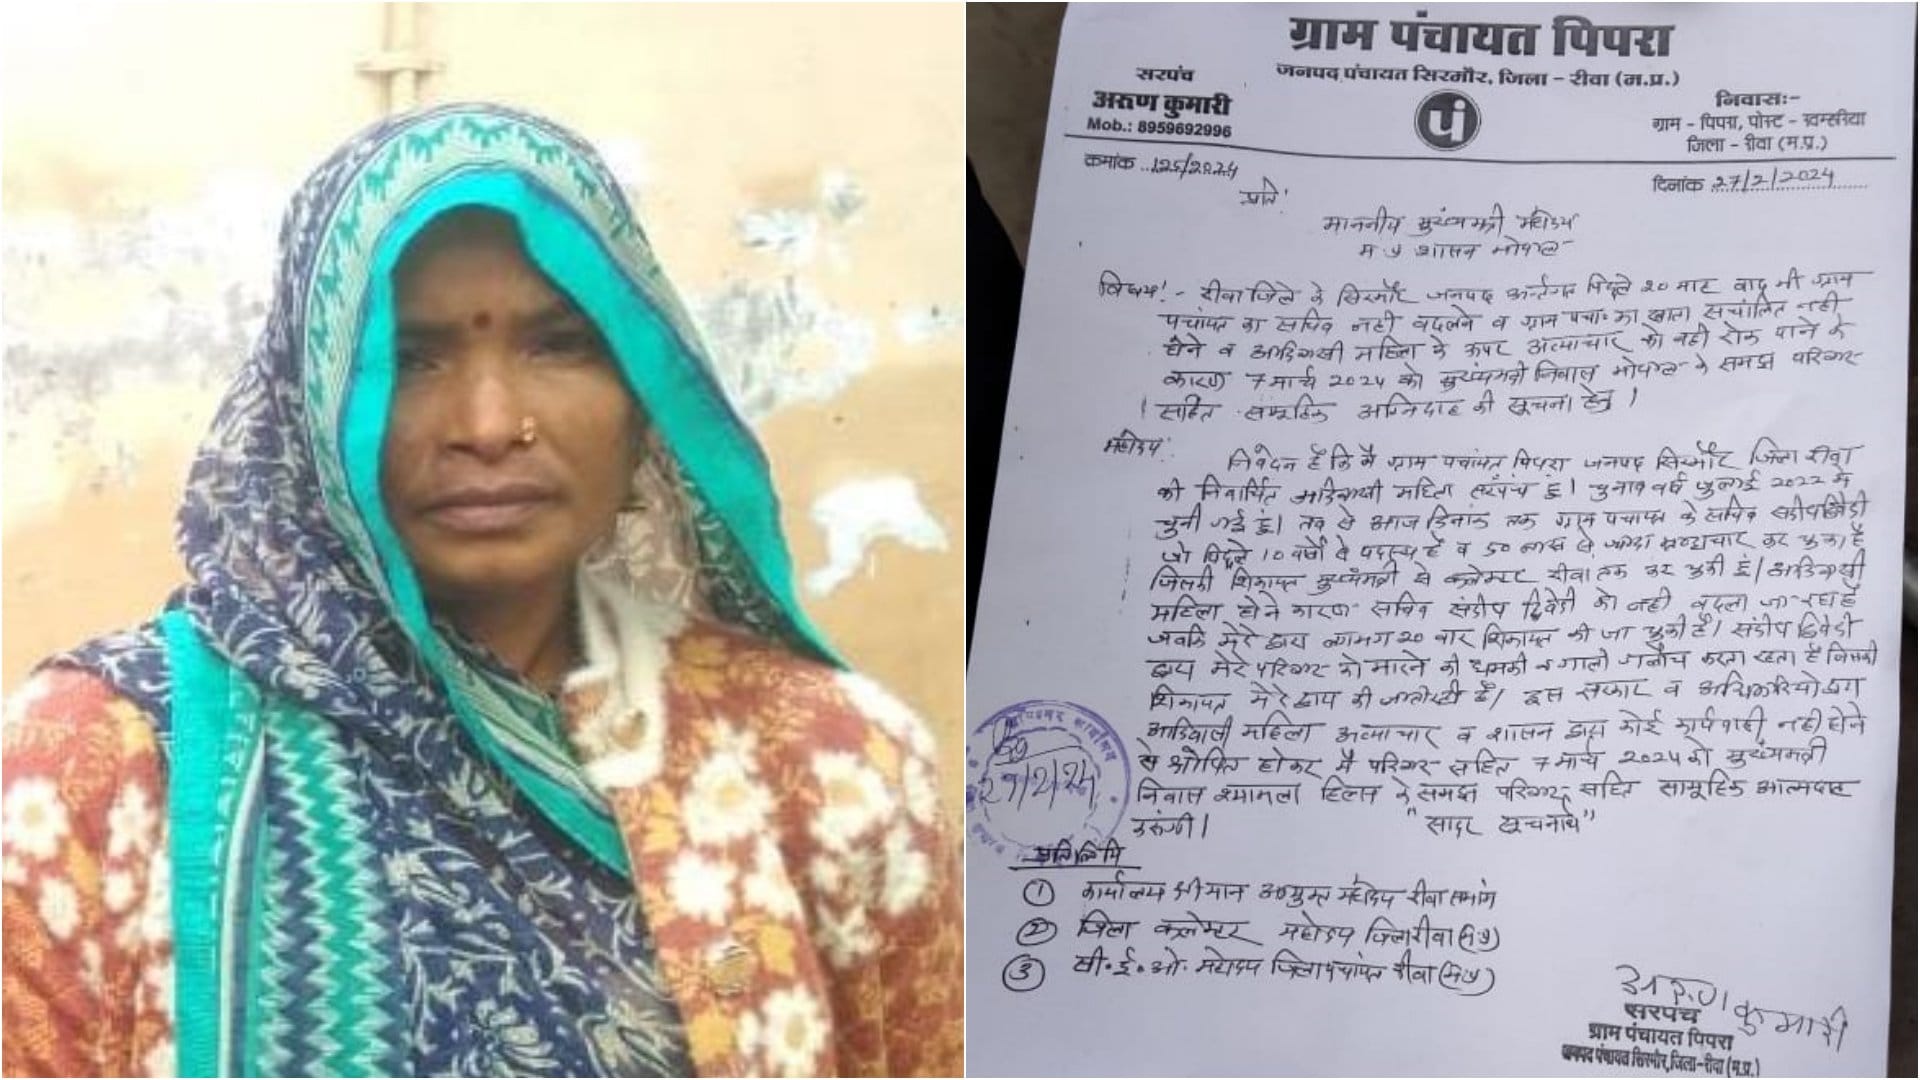 ग्राम पंचायत पिपरा
जनपद पंचायत सिरमौर, जिला - रीवा (म.प्र.)
सरपंच
अरुण कुमारी
Mob.: 8959692996
निवास:-
ग्राम - पिपरा, पोस्ट -
जिला - रीवा (म.प्र.)
कमांक ..125/2024
दिनांक 27/2/2024
प्रति!
माननीय मुख्यमंत्री महोदय
म प्र शासन भोपाल
विषय!- रीवा जिले के सिरमौर जनपद अर्न्तगत पिछले 20 माह बाद भी ग्राम
पंचांयत का सचिव नही बदलने व ग्राम पंचा॰ का खाता सचांलित नही
होने व आदिवासी महिला के ऊपर अत्याचार को नही रोक पाने के
कारण 7 मार्च 2024 को मुख्यमंत्री निवास भोपाल के समक्ष परिवार
सहित समूहिक अग्निदाह की सूचना हेतु।
महोदय!
निवेदन है कि मै ग्राम पंचांयत पिपरा जनपद सिरमौर जिला रीवा
की निर्वाचित आदिवासी महिला सरपंच हूं। चुनाव वर्ष जुलाई 2022 मे
चुनी गई हूं। तब से आज दिनांक तक ग्राम पंचायत के सचिव संदीप द्विवेदी
जो पिछले 10 वर्षो से पदस्थ है व 50 लाख से जादा भ्रष्टाचार कर चुका है
जिसकी शिकायत मुख्यमंत्री से कलेक्टर रीवा तक कर चुकी हूं। आदिवासी
महिला होने कारण सचिव संदीप द्विवेदी को नही बदला जा रहा है
जबकि मेरे द्वारा लगभग 20 बार शिकायत की जा चुकी है। संदीप द्विवेदी
द्वारा मेरे परिवार को मारने की धमकी व गाली गलौच करता रहता है जिसकी
शिकायत मेरे द्वारा की जाती रही है। इस सरकार व अधिकारियो द्वारा
आदिवासी महिला अत्याचार व शासन द्वारा कोई कार्यवाही नही होने
से होकर मै परिवार सहित 7 मार्च 2024 को मुख्यमंत्री
निवास श्यामला हिल्स के समक्ष परिवार सहित सामूहिक आत्मदाह
करूंगी।
"सादर सूचनार्थ"
27/2/24
प्रतिलिपि
① कार्यालय श्रीमान आयुक्त महोदय रीवा संभाग
② जिला कलेक्टर महोदय जिला रीवा (म प्र)
③ सी.ई.ओ. महोदय जिला पंचांयत रीवा (म प्र)
अरुण कुमारी
सरपंच
ग्राम पंचायत पिपरा
जनपद पंचायत सिरमौर, जिला-रीवा (म.प्र.)